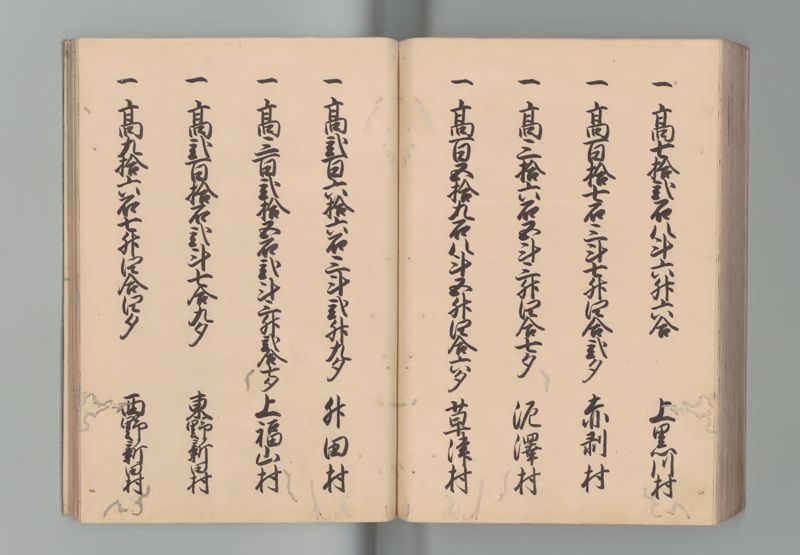 一高七拾弐石八斗六升六合 上黒川村
一高百拾七石三斗七升四合弐夕 赤剥村
一高三拾六石五斗三升四合七夕 泥澤村
一高百五拾九石八斗五升四合六夕 草津村
一高弐百六拾六石三斗弐升九夕 舛田村
一高三百弐拾五石弐斗三升弐合七夕 上福山村
一高弐百拾石弐斗七合九夕 東野新田村
一高九拾六石七升四合四夕 西野新田村